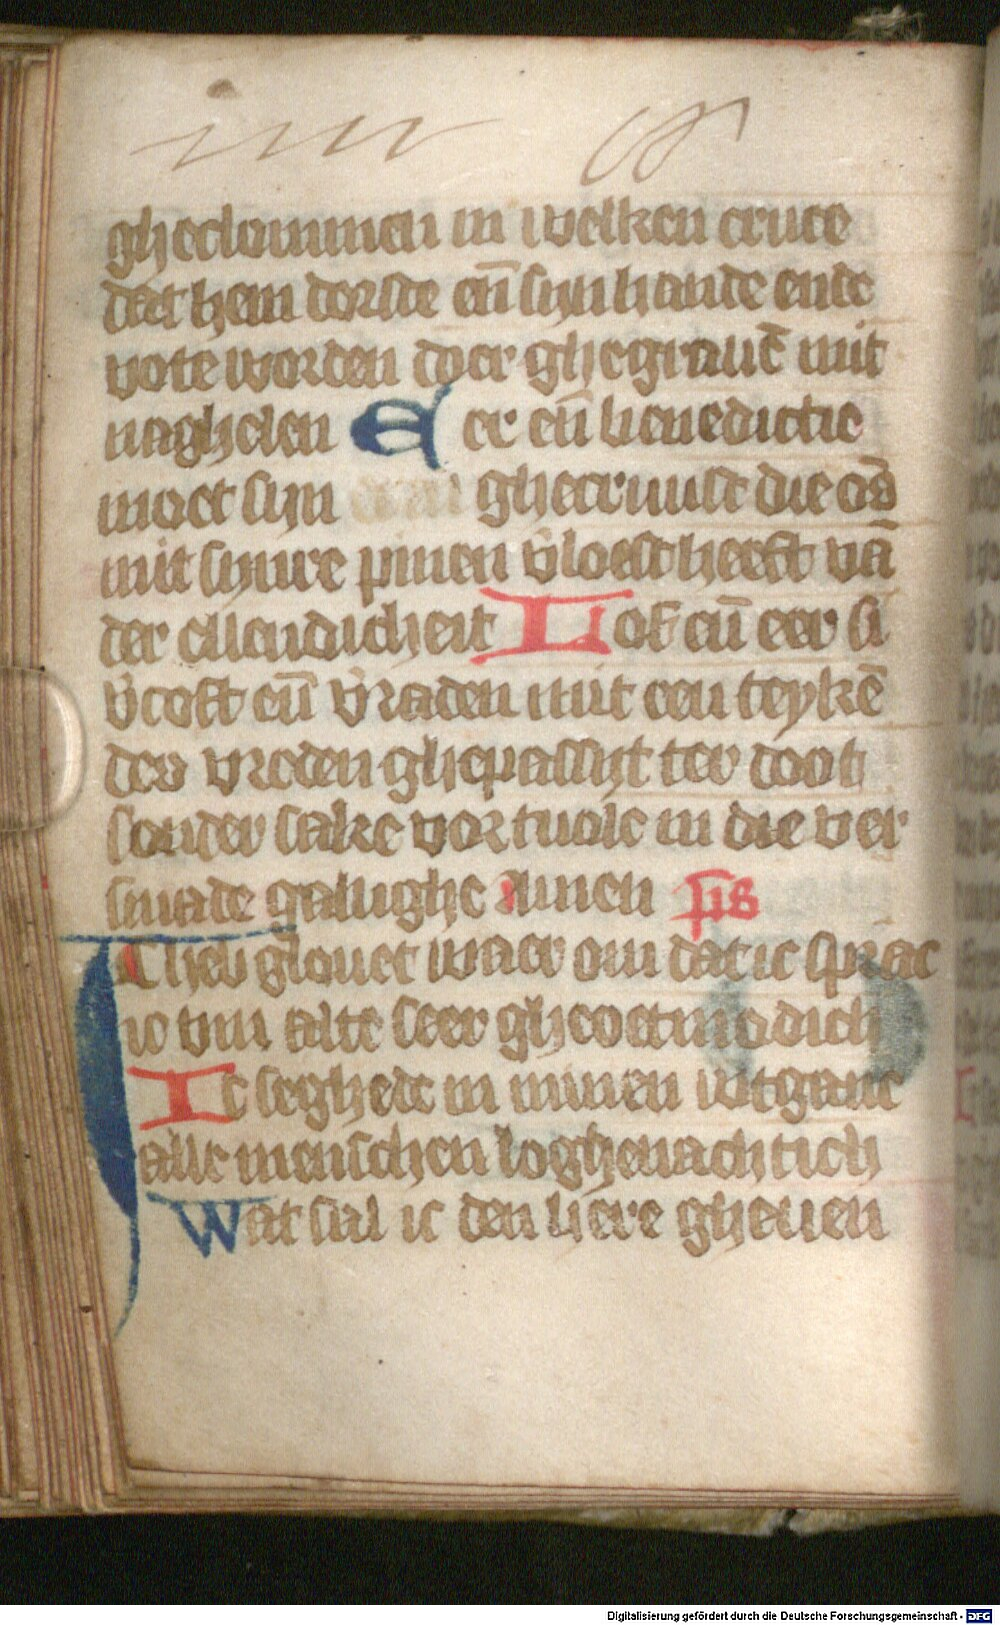 gheclommen in welken cruce
dat hem dorste en̄ syn hande ende
vote worden doer ghegrauē mit
naghelen Eer en̄ benedictie
moet syn ghecruust die ōs
mit synre pinen v̄loest heeft vā
der ellendicheit Lof en̄ eer si
v̄coft en̄ v̄raden mit een teykē
des vreden ghepassyt ter doot
sonder sake vortuole in die ver
smade galughe Amen p̄s
Ic heb glouet waer om dat ic sprac
ic bin alte seer gheoetmodich
Ic seghede in minen vtganc
alle menschen loghenachtich
Wat sal ic den here gheuen
Digitalisierung gefördert durch die Deutsche Forschungsgemeinschaft - DFG